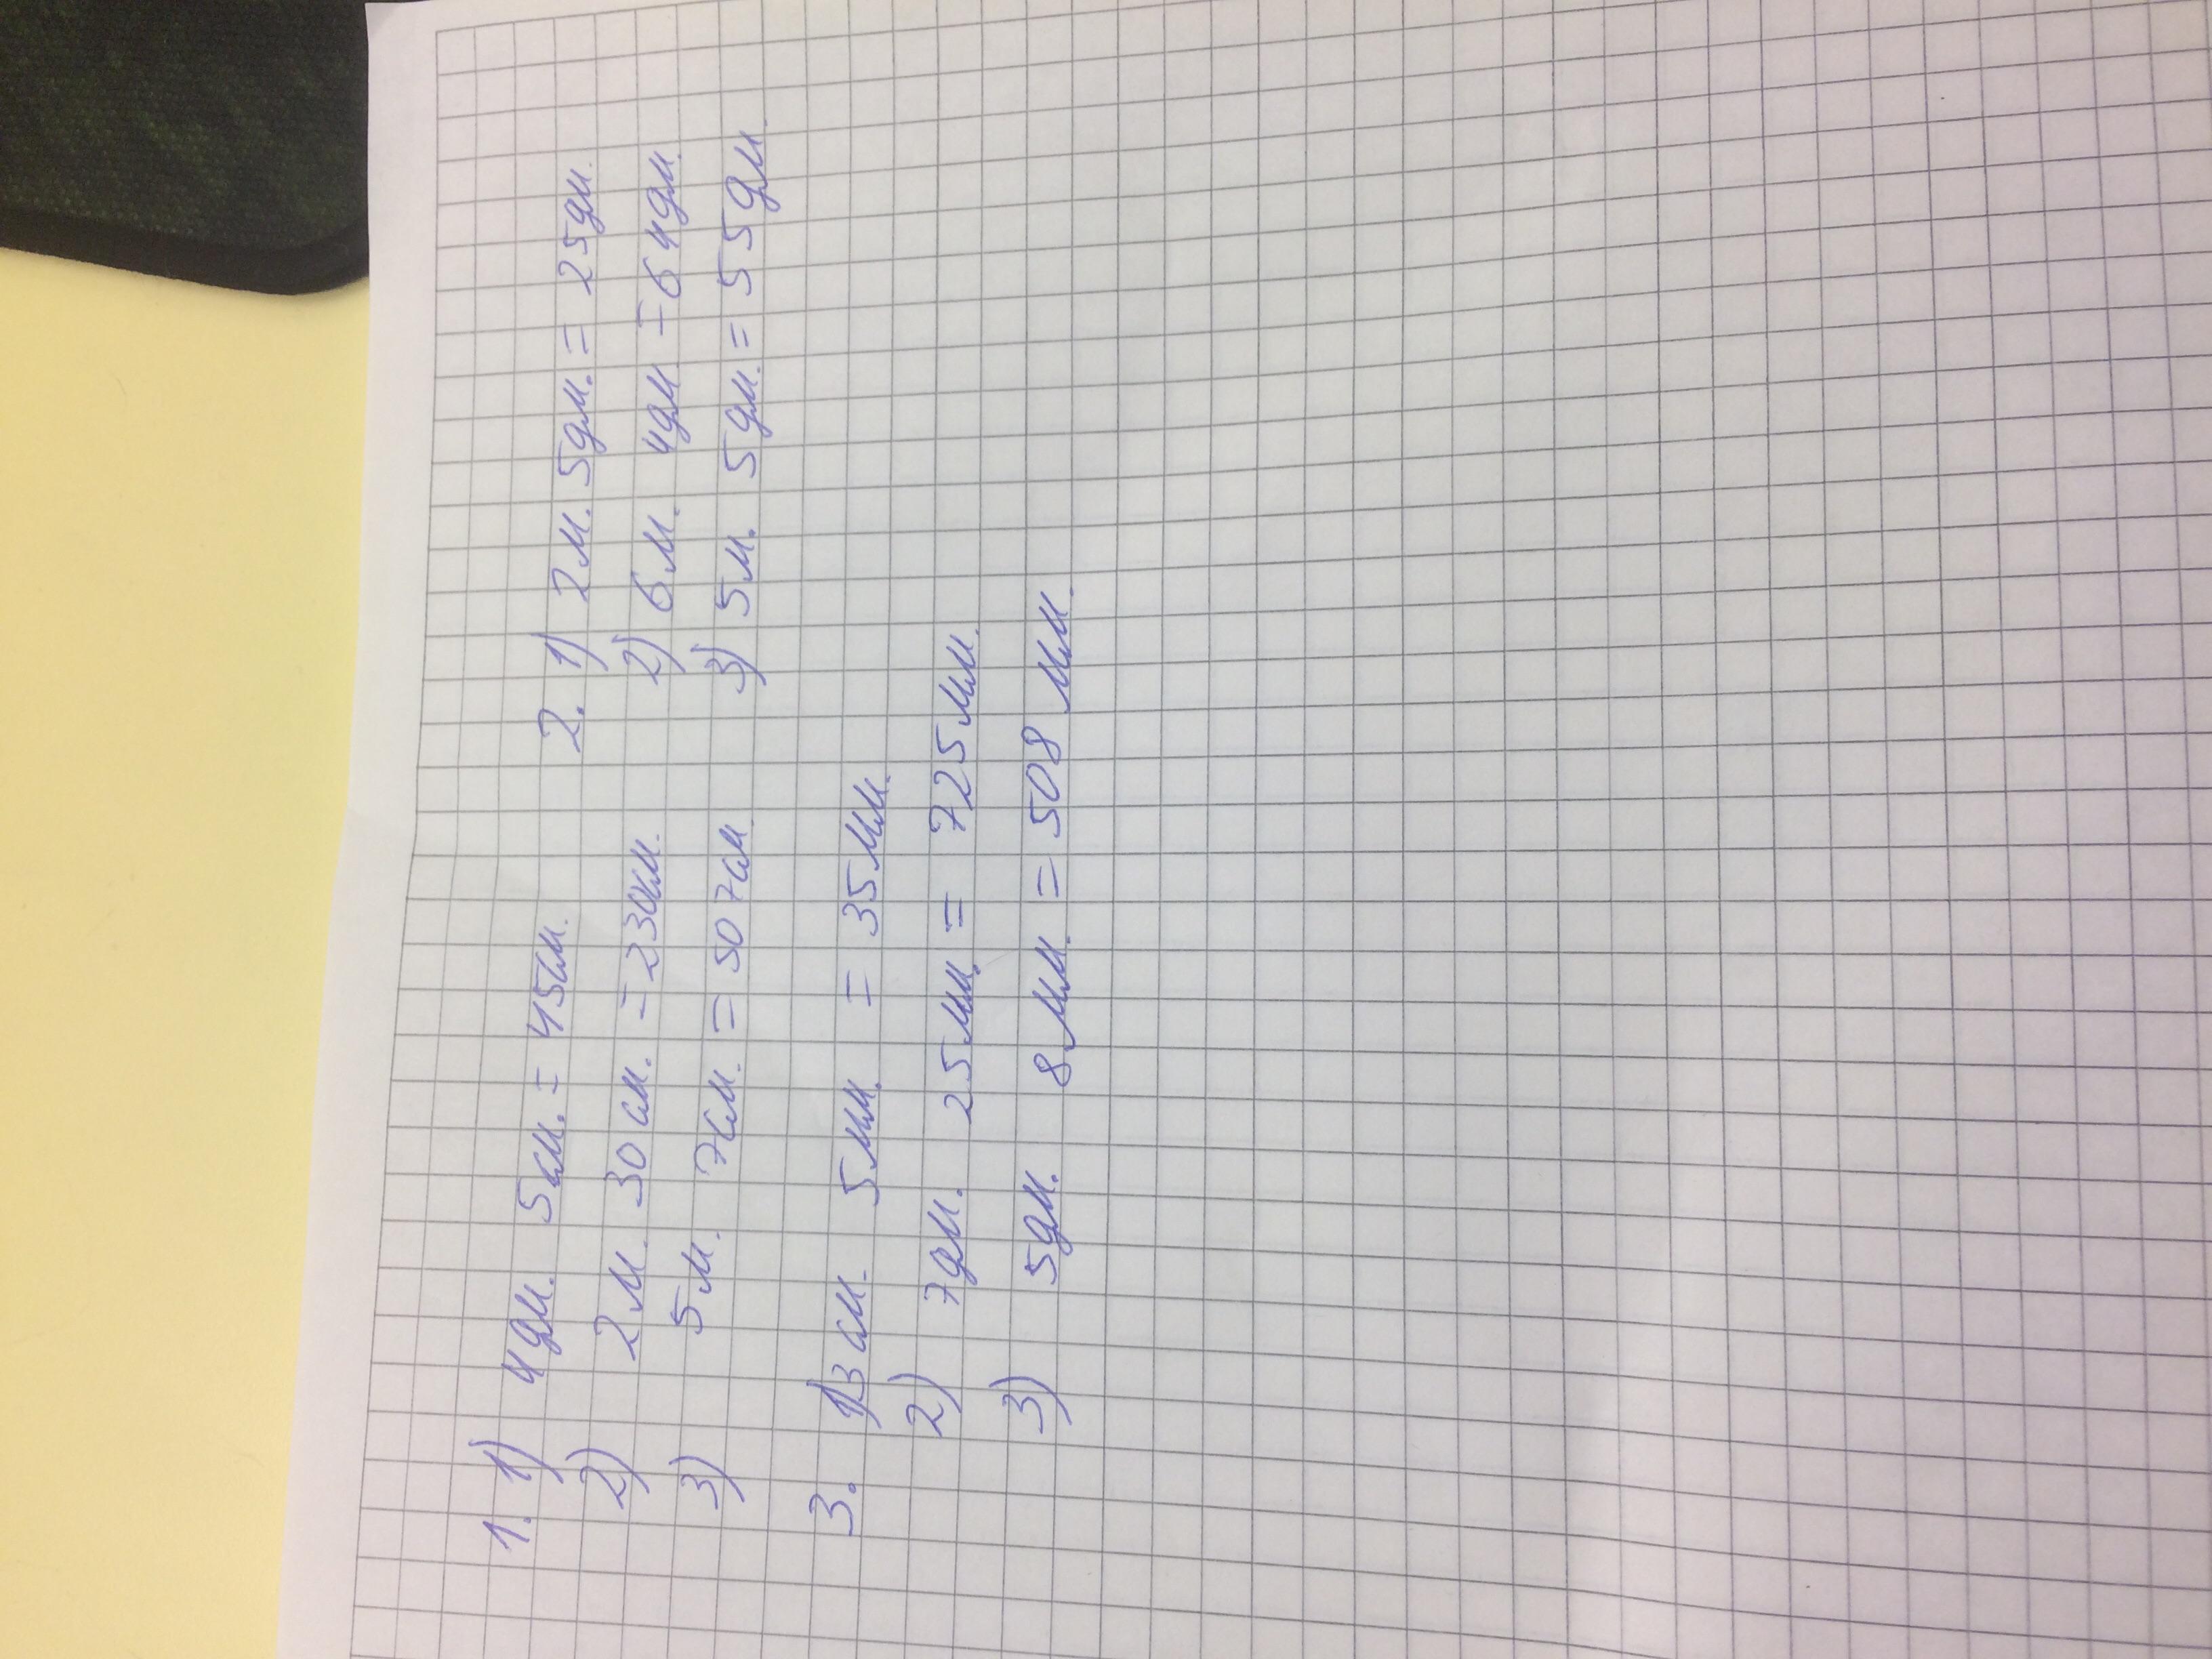 1. 1) 4дм. 5см. = 45см.
2) 2м. 30см. = 230см.
3) 5м. 7см. = 507см.
2. 1) 2м. 5дм. = 25дм.
2) 6м. 4дм = 64дм.
3) 5м. 5дм. = 55дм.
3. 1) 3см. 5мм. = 35мм.
2) 7дм. 25мм. = 725мм.
3) 5дм. 8мм. = 508мм.